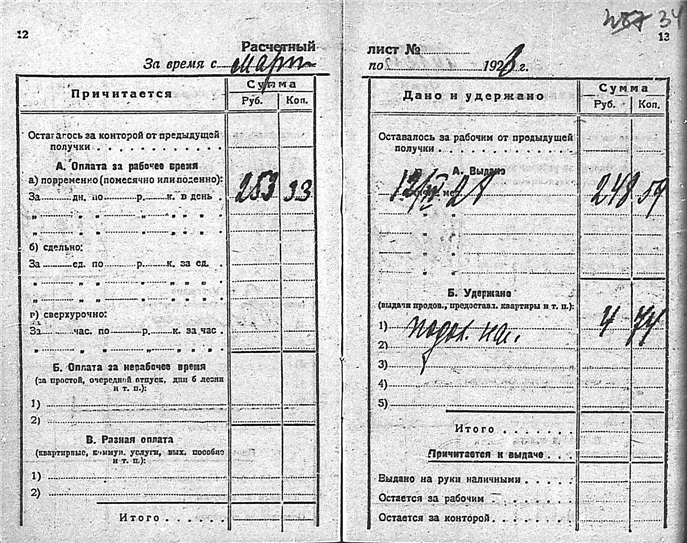 12
Расчетный
За время с март
Причитается
Сумма
Руб. Коп.
Оставалось за конторой от предыдущей
получки
А. Оплата за рабочее время
а) повременно (помесячно или поденно):
За дн. по р. к. в день 253 33
„ „ „ „ „ „
„ „ „ „ „ „
б) сдельно:
За ед. по р. к. за ед.
„ „ „ „ „ „
„ „ „ „ „ „
г) сверхурочно:
За час. по р. к. за час
„ „ „ „ „ „
Б. Оплата за нерабочее время
(за простой, очередной отпуск, дни б лезни
и т. п.):
1)
2)
В. Разная оплата
(квартирные, коммун. услуги, вых. пособие
и т. п.):
1)
2)
Итого
34
13
лист №
по 1928 г.
Дано и удержано
Сумма
Руб. Коп.
Оставалось за рабочим от предыдущей
получки
А. Выдано
248 59
„ „
„ „
„ „
Б. Удержано
(выдачи продов., предоставл. квартиры и т. п.):
1) подох. нал. 4 74
2)
3)
4)
5)
Итого
Причитается к выдаче
Выдано на руки наличными
Остается за рабочим
Остается за конторой